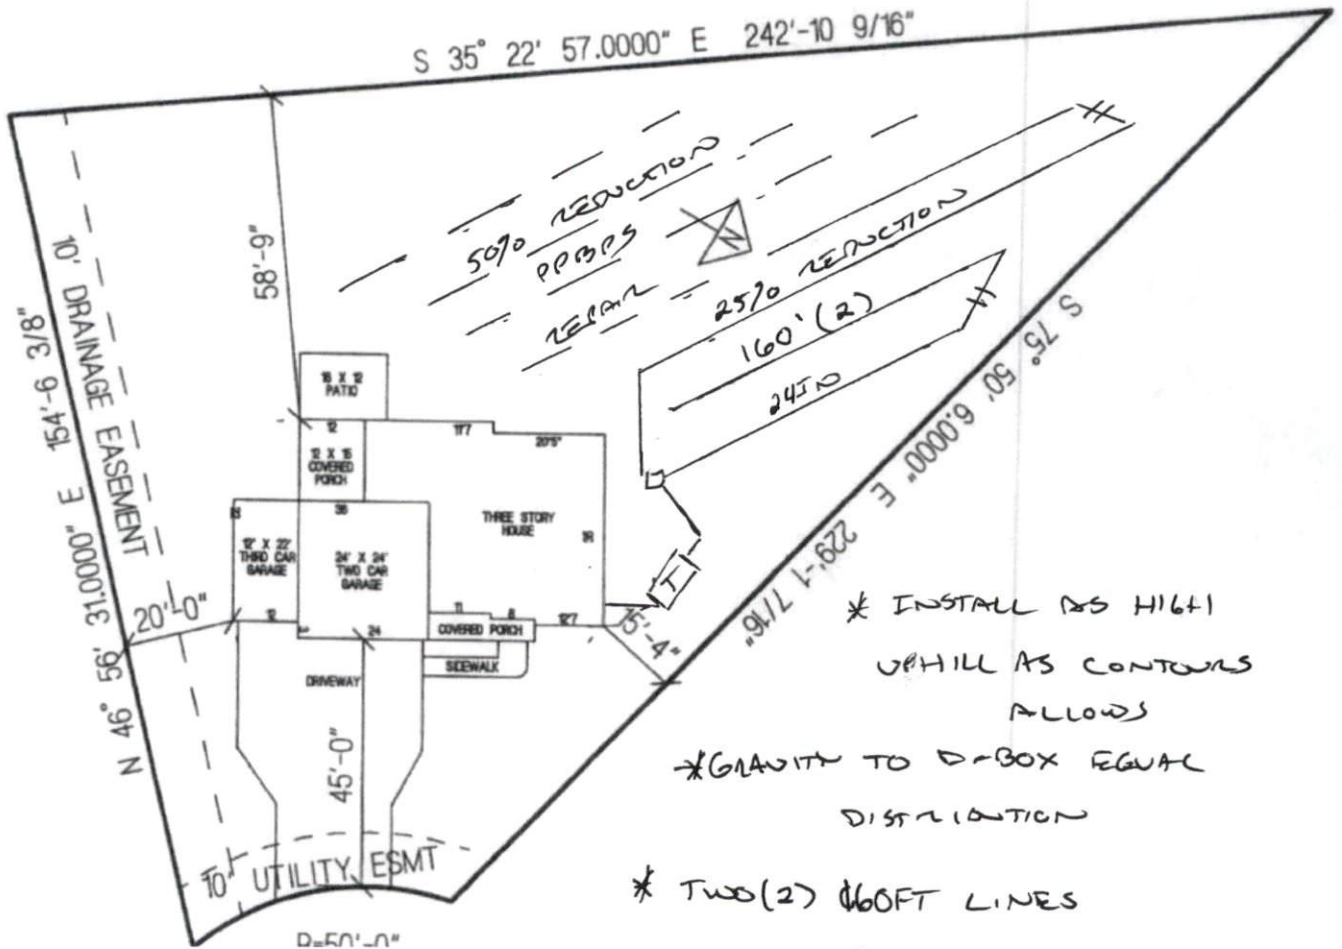 S 35° 22' 57.0000" E 242'-10 9/16"
10' DRAINAGE EASEMENT
N 46° 56' 31.0000" E 154'-6 3/8"
58'-9"
50% REDUCTION
PPBPS
REPAIR
N
25% REDUCTION
160' (2)
24IN
S 75° 50' 6.0000" E 229'-1 7/16"
16 X 12
PATIO
12
117
20'5"
12 X 15
COVERED
PORCH
36
THREE STORY
HOUSE
12' X 22'
THIRD CAR
GARAGE
24' X 24'
TWO CAR
GARAGE
D
T
20'-0"
15'-4"
12
24
11
8
127
COVERED PORCH
SIDEWALK
DRIVEWAY
45'-0"
10' UTILITY ESMT
R=50'-0"
* INSTALL AS HIGH
UPHILL AS CONTOURS
ALLOWS
* GRAVITY TO D-BOX EQUAL
DISTRIBUTION
* TWO(2) 160FT LINES